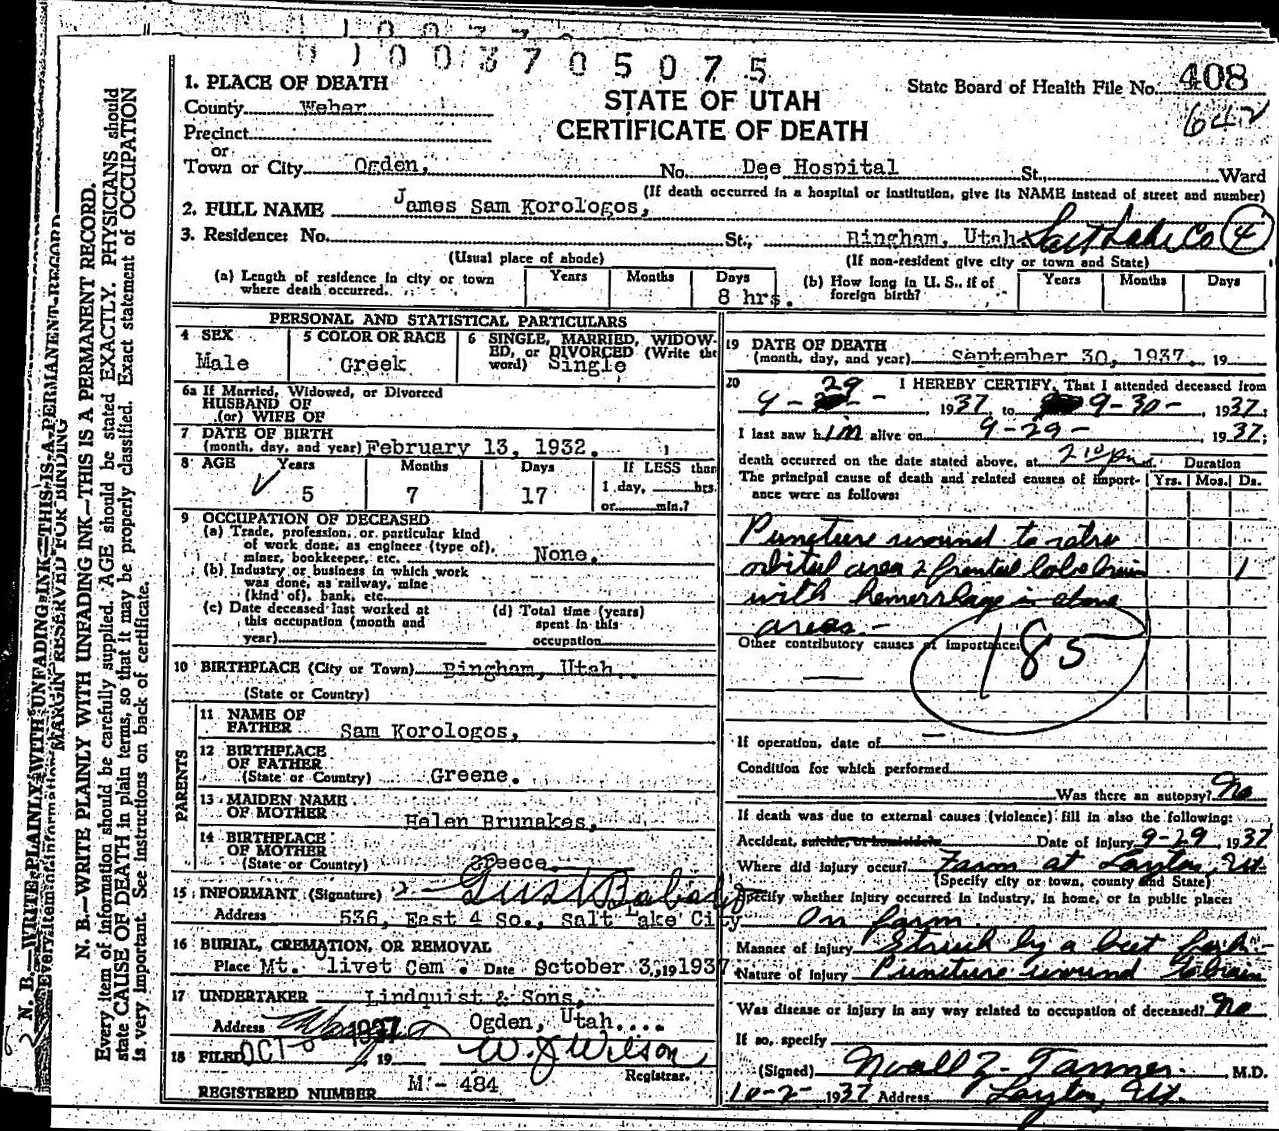 0 1 0 0 3 7 0 5 0 7 5
1. PLACE OF DEATH
State Board of Health File No. 408
642
County Weber
STATE OF UTAH
Precinct
CERTIFICATE OF DEATH
or
Town or City Ogden, No. Dee Hospital St., Ward
(If death occurred in a hospital or institution, give its NAME instead of street and number)
2. FULL NAME James Sam Korologos,
3. Residence: No. St., Bingham, Utah Salt Lake Co 4
(Usual place of abode) (If non-resident give city or town and State)
(a) Length of residence in city or town where death occurred. Years Months Days 8 hrs. (b) How long in U. S., if of foreign birth? Years Months Days
PERSONAL AND STATISTICAL PARTICULARS
4 SEX Male 5 COLOR OR RACE Greek 6 SINGLE, MARRIED, WIDOWED, or DIVORCED (Write the word) Single
6a If Married, Widowed, or Divorced
HUSBAND OF
(or) WIFE OF
7 DATE OF BIRTH
(month, day, and year) February 13, 1932.
8 AGE Years Months Days If LESS than
5 7 17 1 day, hrs.
or min.?
9 OCCUPATION OF DECEASED
(a) Trade, profession, or particular kind
of work done, as engineer (type of),
miner, bookkeeper, etc. None.
(b) Industry or business in which work
was done, as railway, mine
(kind of), bank, etc.
(c) Date deceased last worked at this occupation (month and year) (d) Total time (years) spent in this occupation
10 BIRTHPLACE (City or Town) Bingham, Utah..
(State or Country)
PARENTS
11 NAME OF
FATHER Sam Korologos,
12 BIRTHPLACE
OF FATHER
(State or Country) Greene.
13 MAIDEN NAME
OF MOTHER Helen Brunakes,
14 BIRTHPLACE
OF MOTHER
(State or Country) Greece
15 INFORMANT (Signature) Gust
Address 536, East 4 So., Salt Lake City
16 BURIAL, CREMATION, OR REMOVAL
Place Mt. Olivet Cem. Date October 3, 19 1937
17 UNDERTAKER Lindquist & Sons,
Address Ogden, Utah....
18 FILED OCT 1937 19 W J Wilson
Registrar.
REGISTERED NUMBER M - 484
19 DATE OF DEATH
(month, day, and year) September 30, 1937. 19
20 I HEREBY CERTIFY, That I attended deceased from
9-29- 1937, to 9-30-, 1937;
I last saw him alive on 9-29- 1937;
death occurred on the date stated above, at 2 10 pm. Duration
The principal cause of death and related causes of importance were as follows: Yrs. Mos. Ds.
Puncture wound to retro
orbital area & frontal lobe brain 1
with hemorrhage in above
areas.-
Other contributory causes of importance:
185
If operation, date of
Condition for which performed
Was there an autopsy? No
If death was due to external causes (violence) fill in also the following:
Accident, suicide, or homicide Date of injury 9-29 1937
Where did injury occur? Farm at Layton, Ut.
(Specify city or town, county and State)
Specify whether injury occurred in industry, in home, or in public place:
On farm
Manner of Injury Struck by a beet fork.-
Nature of Injury Puncture wound to brain
Was disease or injury in any way related to occupation of deceased? No
If so, specify
(Signed) Noall Z. Tanner. M.D.
10-2- 1937 Address Layton, Ut.
MARGIN RESERVED FOR BINDING
N. B.—WRITE PLAINLY WITH UNFADING INK—THIS IS A PERMANENT RECORD.
Every item of information should be carefully supplied. AGE should be stated EXACTLY. PHYSICIANS should
state CAUSE OF DEATH in plain terms, so that it may be properly classified. Exact statement of OCCUPATION
is very important. See instructions on back of certificate.